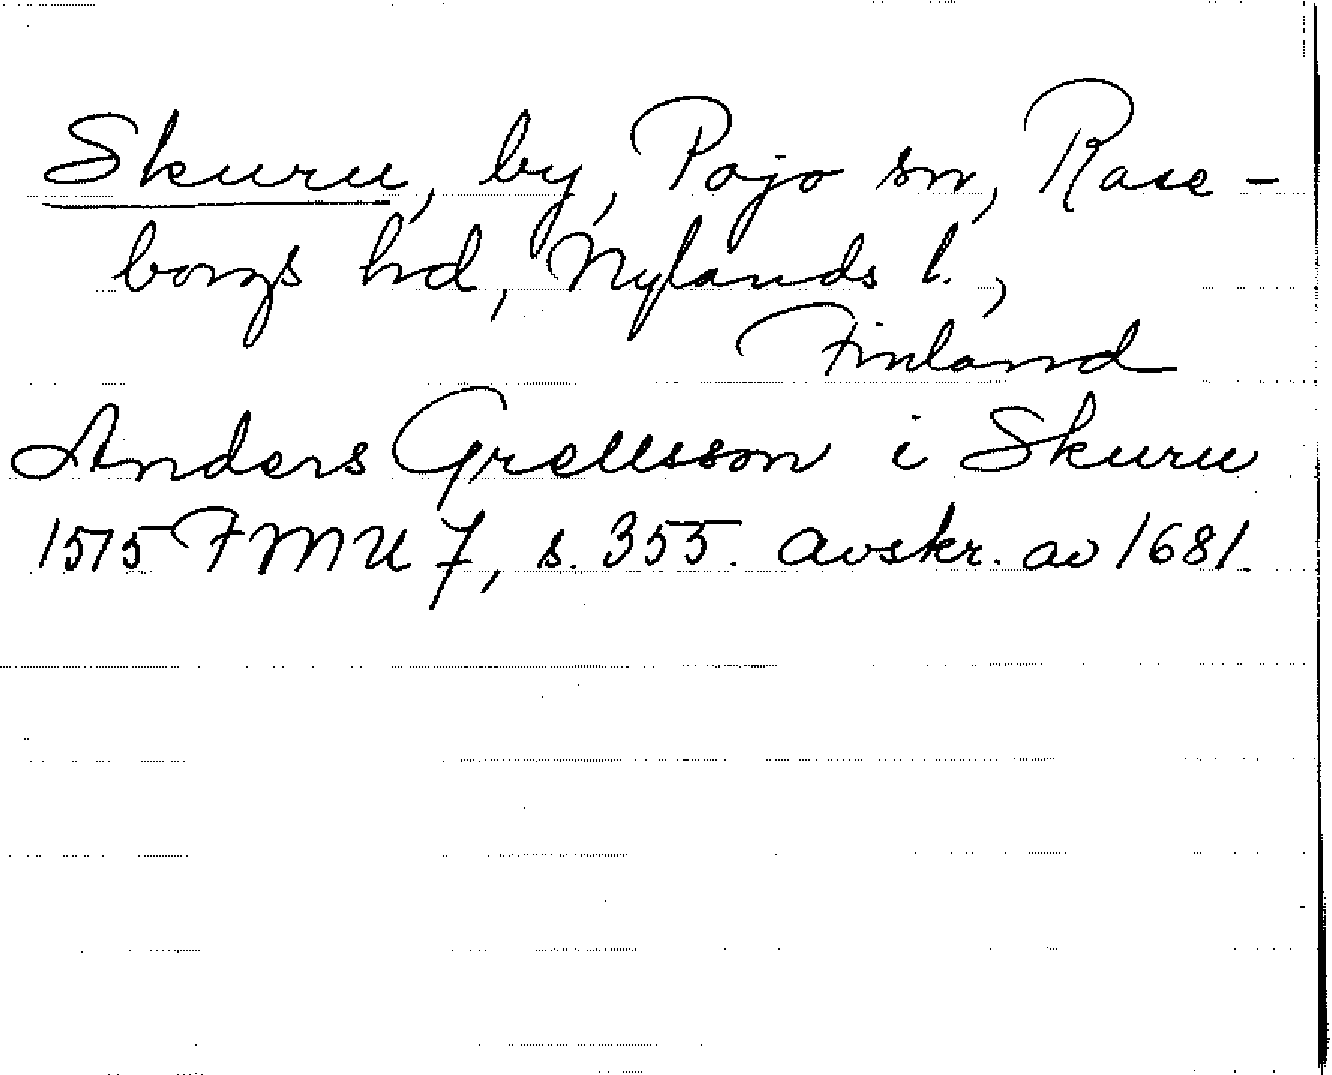 Skuru, by, Pojo sn, Rase-
borgs hd, Nylands l.,
Finland
Anders Grellsson i Skuru
1515 FMU 7, s. 355. avskr. av 1681.